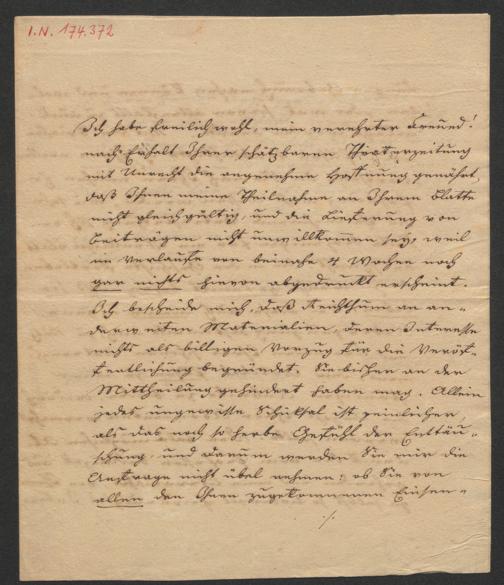 I.N. 174.372
Ich habe freilich wohl, mein verehrter Freund!
nach Erhalt Ihrer schätzbaren Theaterzeitung
mit Unrecht die angenehme Hoffnung genährt,
daß Ihnen meine Theilnahme an Ihrem Blatte
nicht gleichgültig, und die Lieferung von
Beiträgen nicht unwillkommen sey, weil
im Verlaufe von beinahe 4 Wochen noch
gar nichts hievon abgedrukt erscheint.
Ich bescheide mich, daß Reichthum an an-
derweiten Materialien, deren Interesse
nichts als billigen Vorzug für die Veröf-
fentlichung begründet, Sie bisher an der
Mittheilung gehindert haben mag. Allein
jedes ungewisse Schiksal ist peinlicher,
als das noch so herbe Gefühl der Enttäu-
schung, und darum werden Sie mir die
Anfrage nicht übel nehmen: ob Sie von
allen den Ihnen zugekommenen Einsen-
./.